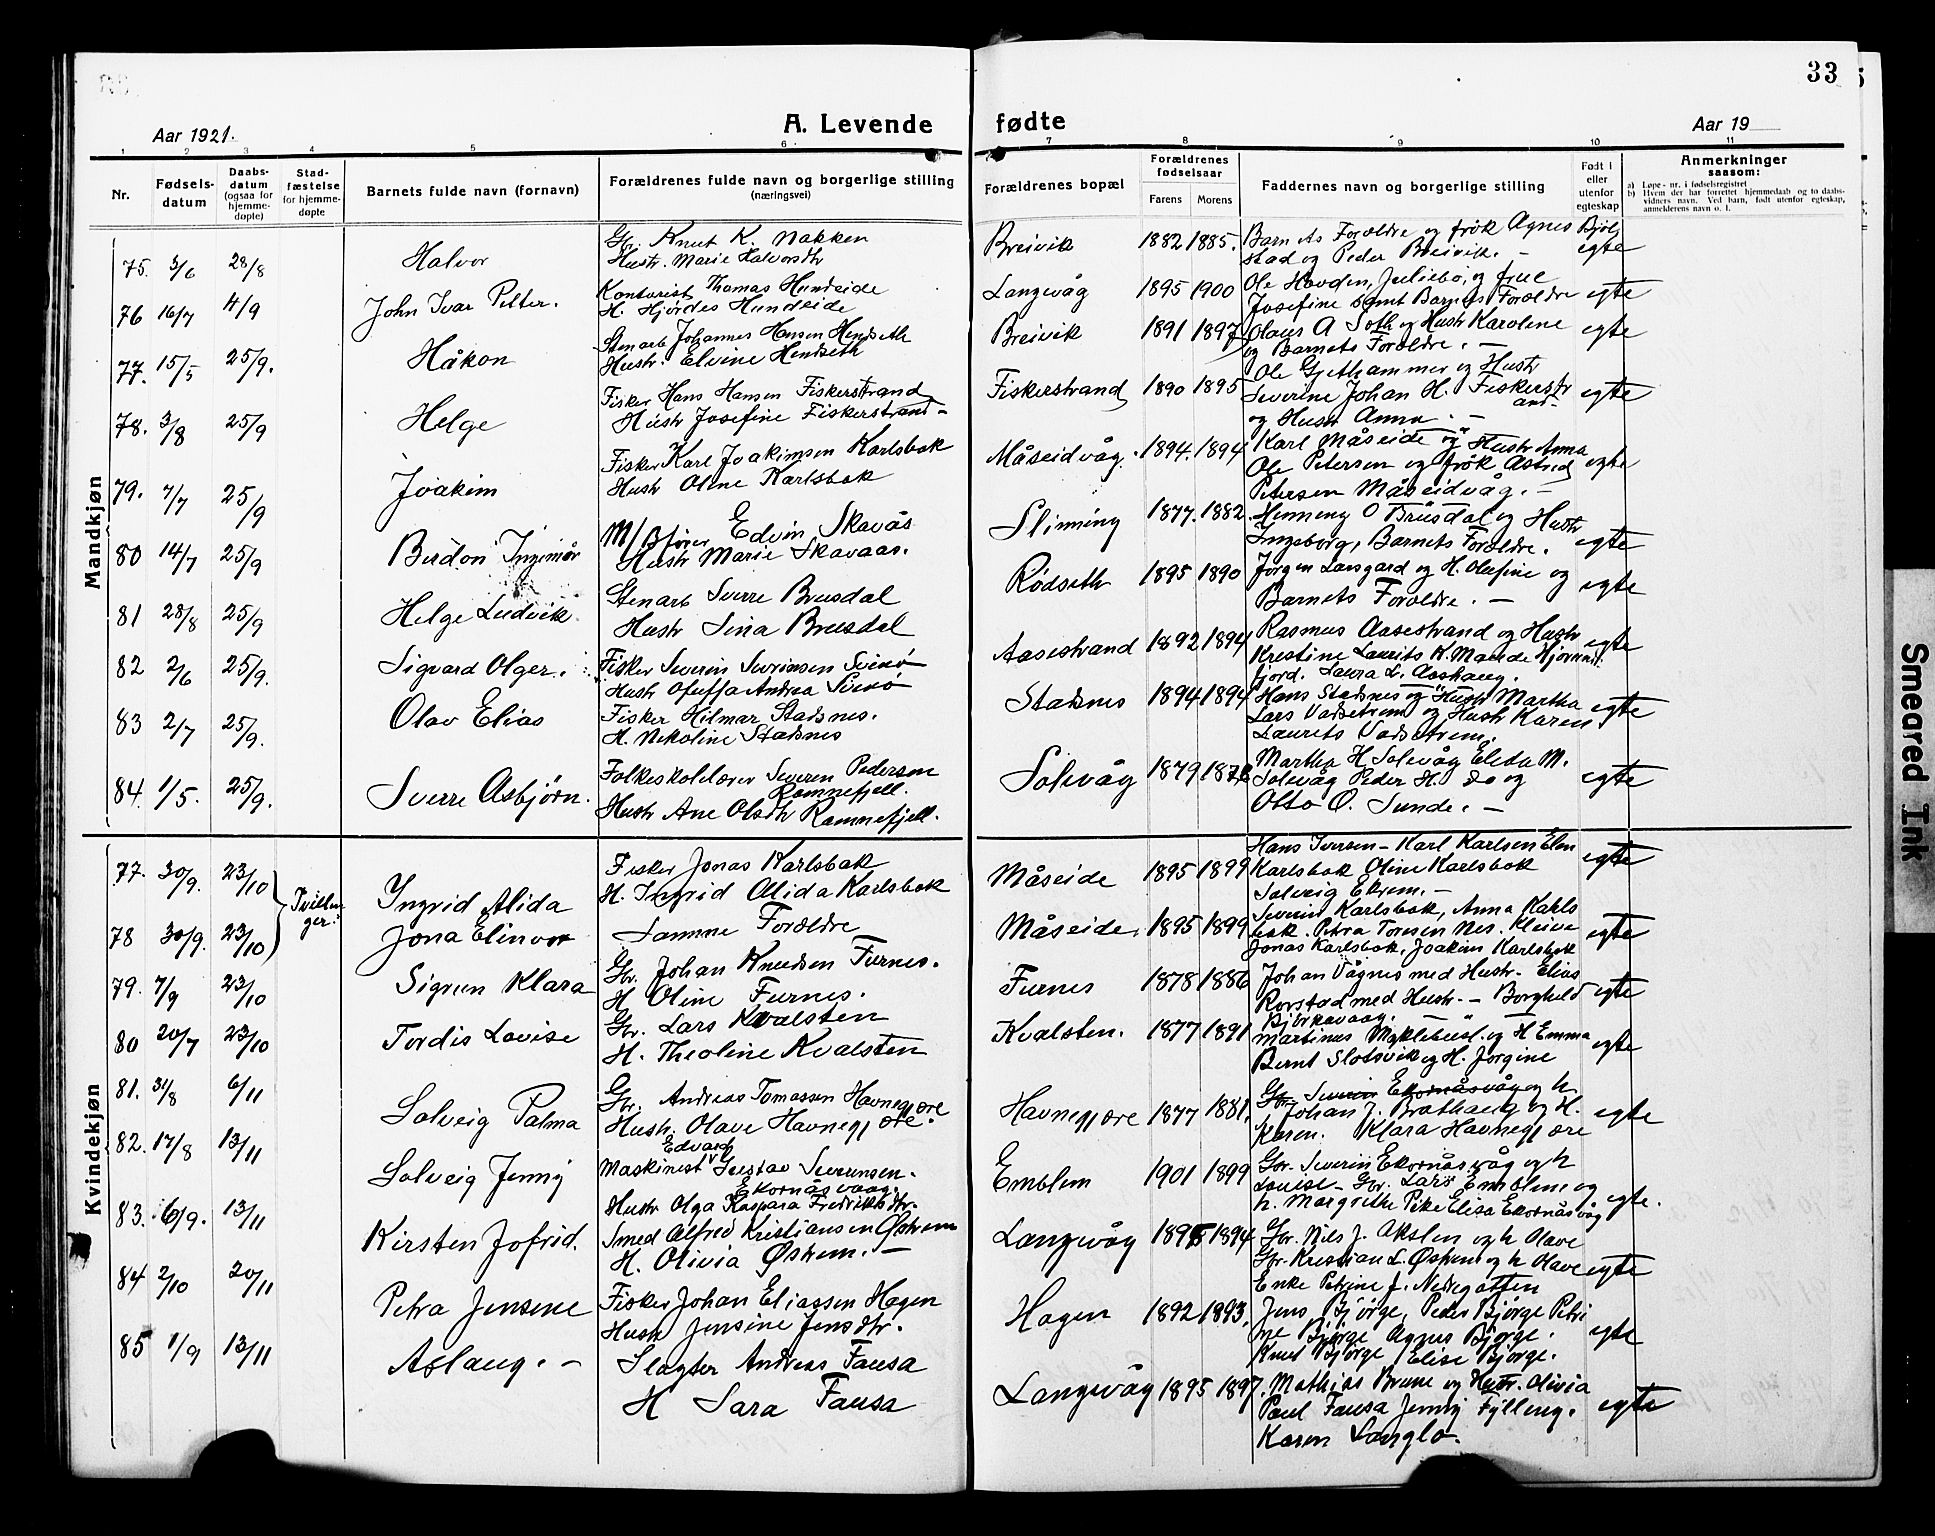 33
Aar 1921.
A. Levende fødte
Aar 19
1 2 3 4 5 6 7 8 9 10 11
Nr.
Fødsels-
datum
Daabs-
datum
(ogsaa for
hjemme-
døpte)
Stad-
fæstelse
for hjemme-
døpte
Barnets fulde navn (fornavn)
Forældrenes fulde navn og borgerlige stilling
(næringsvei)
Forældrenes bopæl
Forældrenes
fødselsaar
Farens
Morens
Faddernes navn og borgerlige stilling
Født i
eller
utenfor
egteskap
Anmerkninger
saasom:
a) Løpe-nr. i fødselsregistret
b) Hvem der har forrettet hjemmedaab og to daabs-
vidners navn. Ved barn, født utenfor egteskap,
anmelderens navn o. l.
Mandkjøn
75. 3/6 28/8 Halvor
Gbr. Knut K. Nakken
Hustr. Marie Halvorsdtr
Breivik 1882 1885.
Barnets Foræld​re og frøk Agnes Bjøl
stad og Peder Breivik. –
egte
76 16/7 4/9 John Ivar Petter.
Kontorist Thomas Hundeide
H. Hjørdes Hundeide
Langevåg 1895 1900
Ole Hovden, Juliebø, og frue
Josefine samt Barnets Forældre
egte
77. 15/5 25/9. Håkon
Stenarb Johannes Hansen Hendseth
Hustr. Elvine Hendseth
Breivik 1891 1897
Olaus A Soth og Hustr Karoline
og Barnets Forældre. –
egte
78. 3/8 25/9 Helge
Fisker Hans Hansen Fiskerstrand
Hustr Josefine Fiskerstrand –
Fiskerstrand 1890 1895
Ole Gjethammer og Hustr
Severine Johan H. Fiskerstr
and-
og Hustr Anna. –
egte
79. 7/7 25/9 Joakim
Fisker Karl Joakimsen Karlsbak
Hustr Oline Karlsbak
Måseidvåg. 1894. 1894
Karl Måseide og Hustr Anna
Ole Petersen og frøk Astrid
Petersen Måseidvåg. –
egte
80 14/7 25/9 Birdon Ingimår
M/Bfører Edvin Skavås
Hustr Marie Skavaas.
Slinning 1877. 1882.
Henneng O Brusdal og Hustr
Ingeborg, Barnets Forældre.
egte
81 28/8 25/9 Helge Ludvik.
Stenarb Sverre Brusdal
Hustr Sina Brusdal
Rødseth 1895 1890
Jørgen Larsgard og H. Olufine og
Barnets Forældre. –
egte
82 2/6 25/9. Sigvard Olger.
Fisker Severin Severinsen Svinø
Hustr Oluffa Andrea Svinø
Aasestrand 1892 1894
Rasmus Aasestrand og Hustr
Kristine Laurits K. Mande Hjørund
fjord. Laura L. Aashaug.
egte
83 2/7 25/9. Olav Elias
Fisker Hilmar Stadsnes.
H. Nekoline Stadsnes
Stadsnes 1894 1894
Hans Stadsnes og Hustr Martha
Lars Vadsetrem og Hustr Karen
Laurits Vadsetrem.
egte
84. 1/5. 25/9. Sverre Asbjørn.
Folkeskolelærer Severen Pedersen
Ramnefjell.
Hustr Ane Olsdtr Ramnefjell.
Solevåg 1879
Martha H. Solevåg Elida M.
Solevåg Peder H. do og
Otto O. Sunde. –
egte
Kvindekjøn
77. 30/9. 23/10 Tvillin-
ger. Ingrid Alida
Fisker Jonas Karlsbak
H. Ingrid Alida Karlsbak
Måseide 1895 1899
Hans Iversen – Karl Karlsen Elen
Karlsbak Oline Karlsbak
Solveig Ekrem. –
egte
78 30/9. 23/10 Jona Elinor
Samme Forældre
Måseide. 1895 1899
Severin Karlsbak, Anna Karls
bak. Petra Toresen Nes. Kleive
Jonas Karlsbak, Joakim Karlsbak
egte
79. 7/9 23/10 Sigrun Klara
Gbr. Johan Knudsen Furnes.
H Oline Furnes.
Furnes 1878 1886
Johan Vågnes med Hustr. Elias
Rorstad med Hustr. – Borghild
Bjørkavaag. –
egte
80 20/7 23/10 Tordis Lovise
Gbr. Lars Kvalsten
H. Theoline Kvalsten
Kvalsten. 1877 1891
Martinus Myklebust og H Emma
Bernt Slotsvik og H. Jørgine
egte
81. 31/8 6/11 Solveig Palma
Gbr. Andreas Tomassen Havnegjære
Hustr. Olave Havnegjære.
Havnegjære 1877 1881.
Gbr. Severin Ekornåsvåg og h
Johan J. Brathaug og H.
Karen. Klara Havnegjære
egte
82. 17/8 13/11 Solveig Jenny
Edvard
Maskinist Gustav Severinsen.
Ekornåsvaag.
Hustr Olga Kaspara Fredriksdtr.
Emblem 1901 1899
Gbr. Severin Ekornåsvåg og h
Louise – Gbr. Lars Emblem og
h. Margrethe Pike Elisa Ekornåsvåg
egte.
83. 6/9. 13/11 Kirsten Jofrid.
Smed Alfred Kristiansen Østrem
H. Olivia Østrem. –
Langevåg 1895 1894
Gbr. Nils J. Akslen og h Olave
Gbr. Kristian L. Østrem og h Olave
Enke Petrine J. Nedregotten
egte
84 2/10 20/11 Petra Jensine
Fisker Johan Eliassen Hagen
Hustr Jensine Jensdtr.
Hagen 1892 1893.
Jens Bjørge, Peder Bjørge Petri
ne Bjørge Agnes Bjørge.
Knut Bjørge Elise Bjørge.
egte
85 1/9 13/11 Aslaug. –
Slagter Andreas Fausa
H Sara Fausa
Langevåg 1895 1897.
Mathias Brune og Hustr. Olivia
Paul Fausa Jenny Fylling.
Karen Langlo.
egte
Smeared Ink